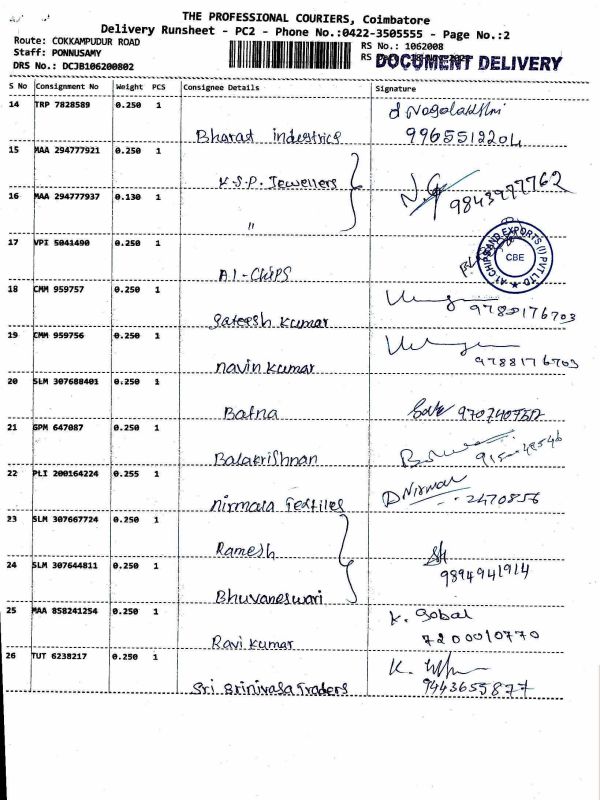 THE PROFESSIONAL COURIERS, Coimbatore
Delivery Runsheet - PC2 - Phone No.:0422-3505555 - Page No.:2
Route: COKKAMPUDUR ROAD
Staff: PONNUSAMY
DRS No.: DCJB106200802
RS No.: 1062008
RS
DOCUMENT DELIVERY
S No Consignment No Weight PCS Consignee Details Signature
14 TRP 7828589 0.250 1 Bharat industries d Nagalakshmi
9965512204
15 MAA 294777921 0.250 1 K.S.P. Jewellers
16 MAA 294777937 0.130 1 " 9843977762
17 VPI 5041490 0.250 1 A1-CHIPS
A1 CHIPS AND EXPORTS (I) PVT LTD
CBE
18 CMM 959757 0.250 1 Sateesh kumar 9788176703
19 CMM 959756 0.250 1 navin kumar 9788176703
20 SLM 307688401 0.250 1 Bafna
21 GPM 647087 0.250 1 Balakrishnan
22 PLI 200164224 0.255 1 nirmala Textiles D Nirmal
2470856
23 SLM 307667724 0.250 1 Ramesh
24 SLM 307644811 0.250 1 Bhuvaneswari 9894941914
25 MAA 858241254 0.250 1 Ravi kumar K. Gobal
7200010770
26 TUT 6238217 0.250 1 Sri Srinivasa Traders K.
9443655877